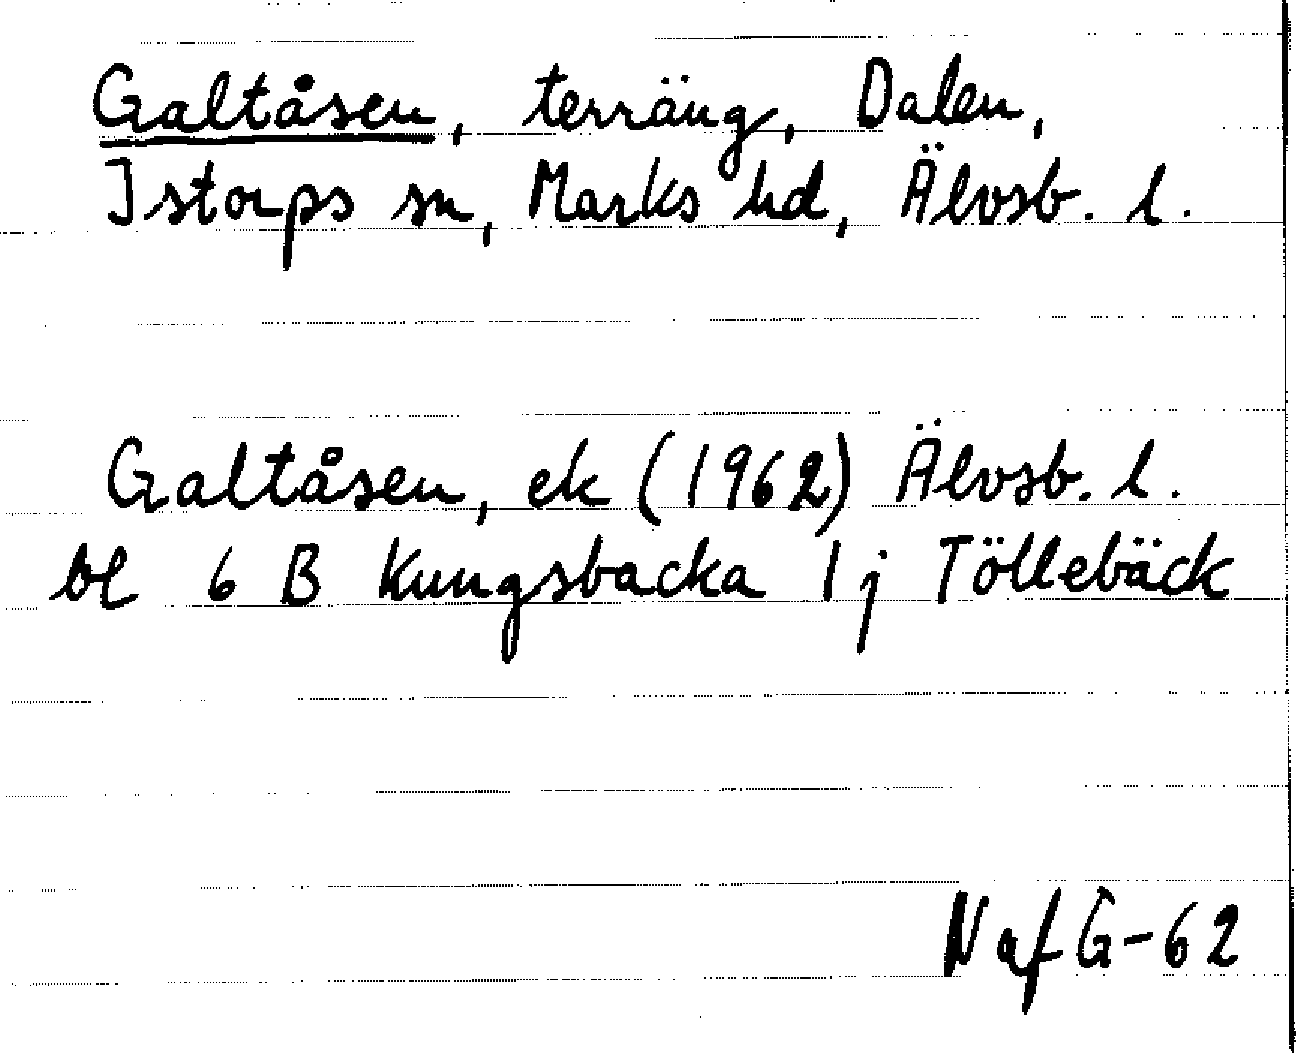 Galtåsen, terräng, Dalen,
Istorps sn, Marks hd, Älvsb. l.
Galtåsen, ek (1962) Älvsb. l.
bl 6 B Kungsbacka 1 j Töllebäck
N af G-62